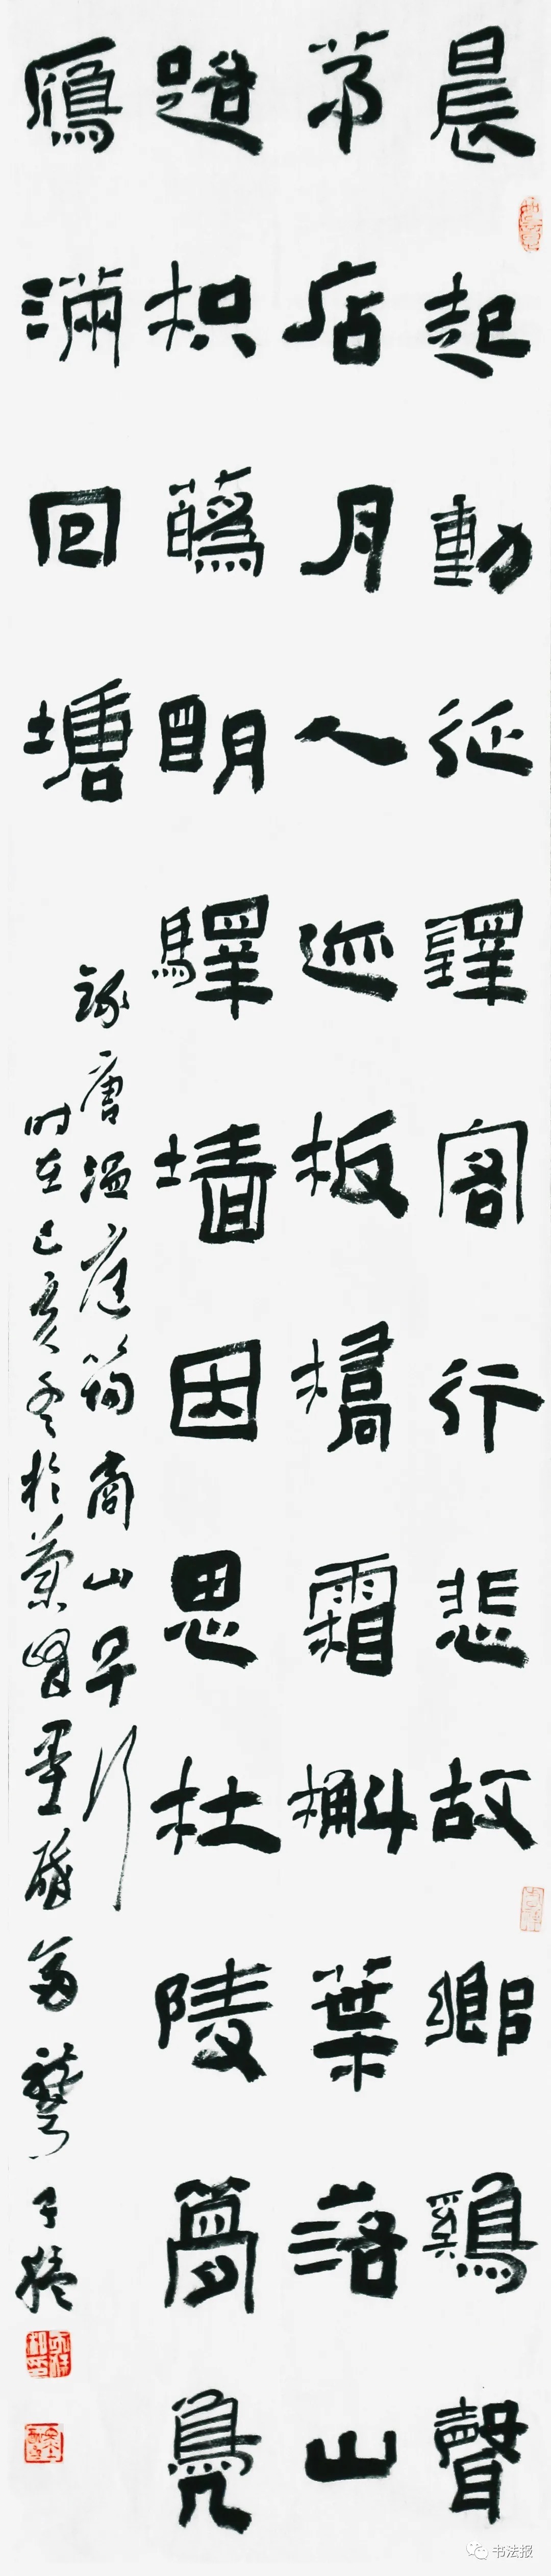 晨起動征鐸客行悲故鄉鷄聲
茅店月人迹板橋霜槲葉落山
路枳蘤明驛墻因思杜陵夢鳧
鴈滿回塘
錄唐温庭筠商山早行
时在己亥冬於蘭
书法报